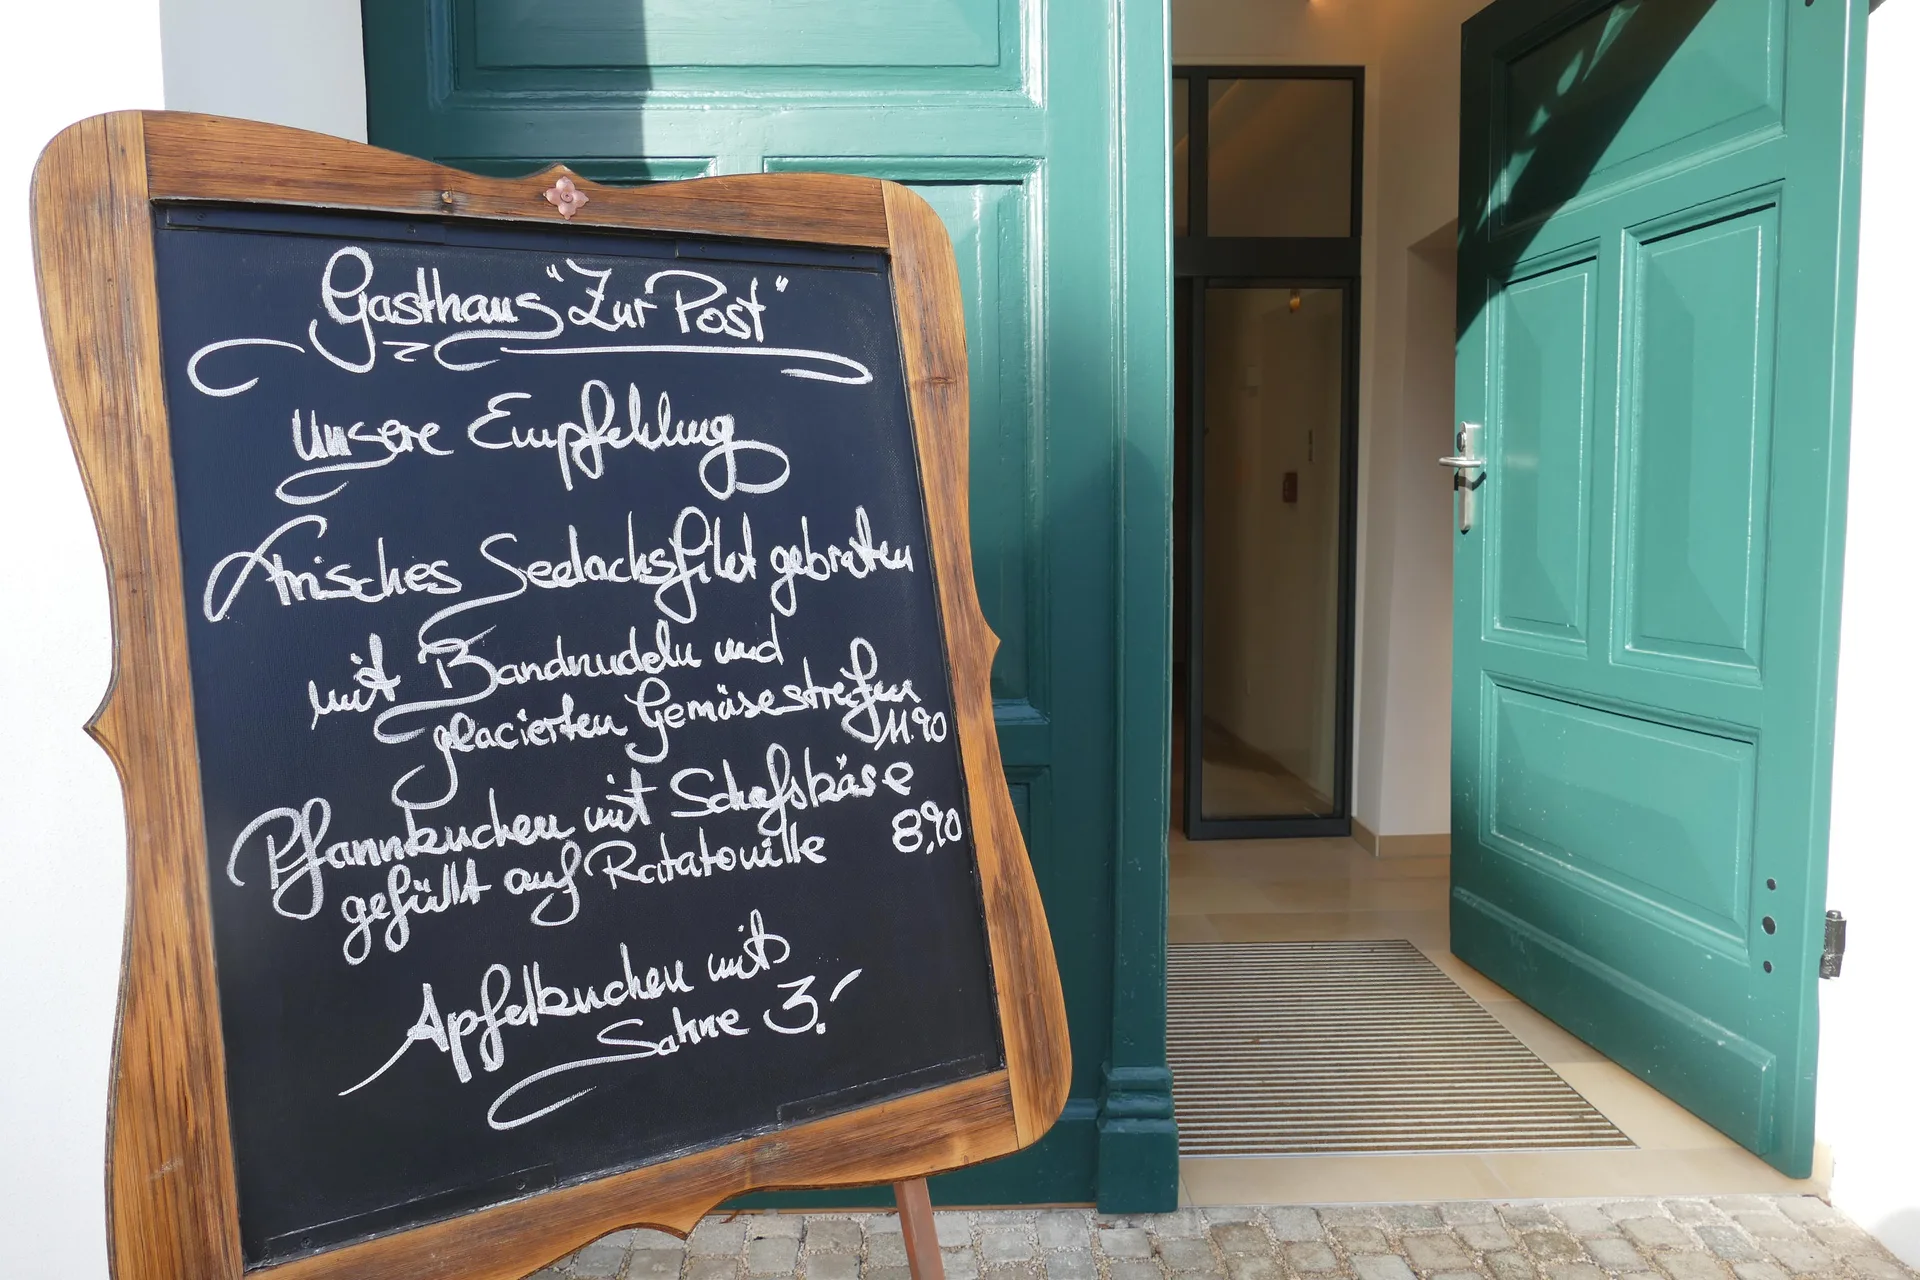 Gasthaus "Zur Post"
unsere Empfehlung
Frisches Seelachsfilet gebraten
mit Bandnudeln und
glacierten Gemüsestreifen
11.90
Pfannkuchen mit Schafskäse
gefüllt auf Ratatouille 8,90
Apfelkuchen mit
Sahne 3.-